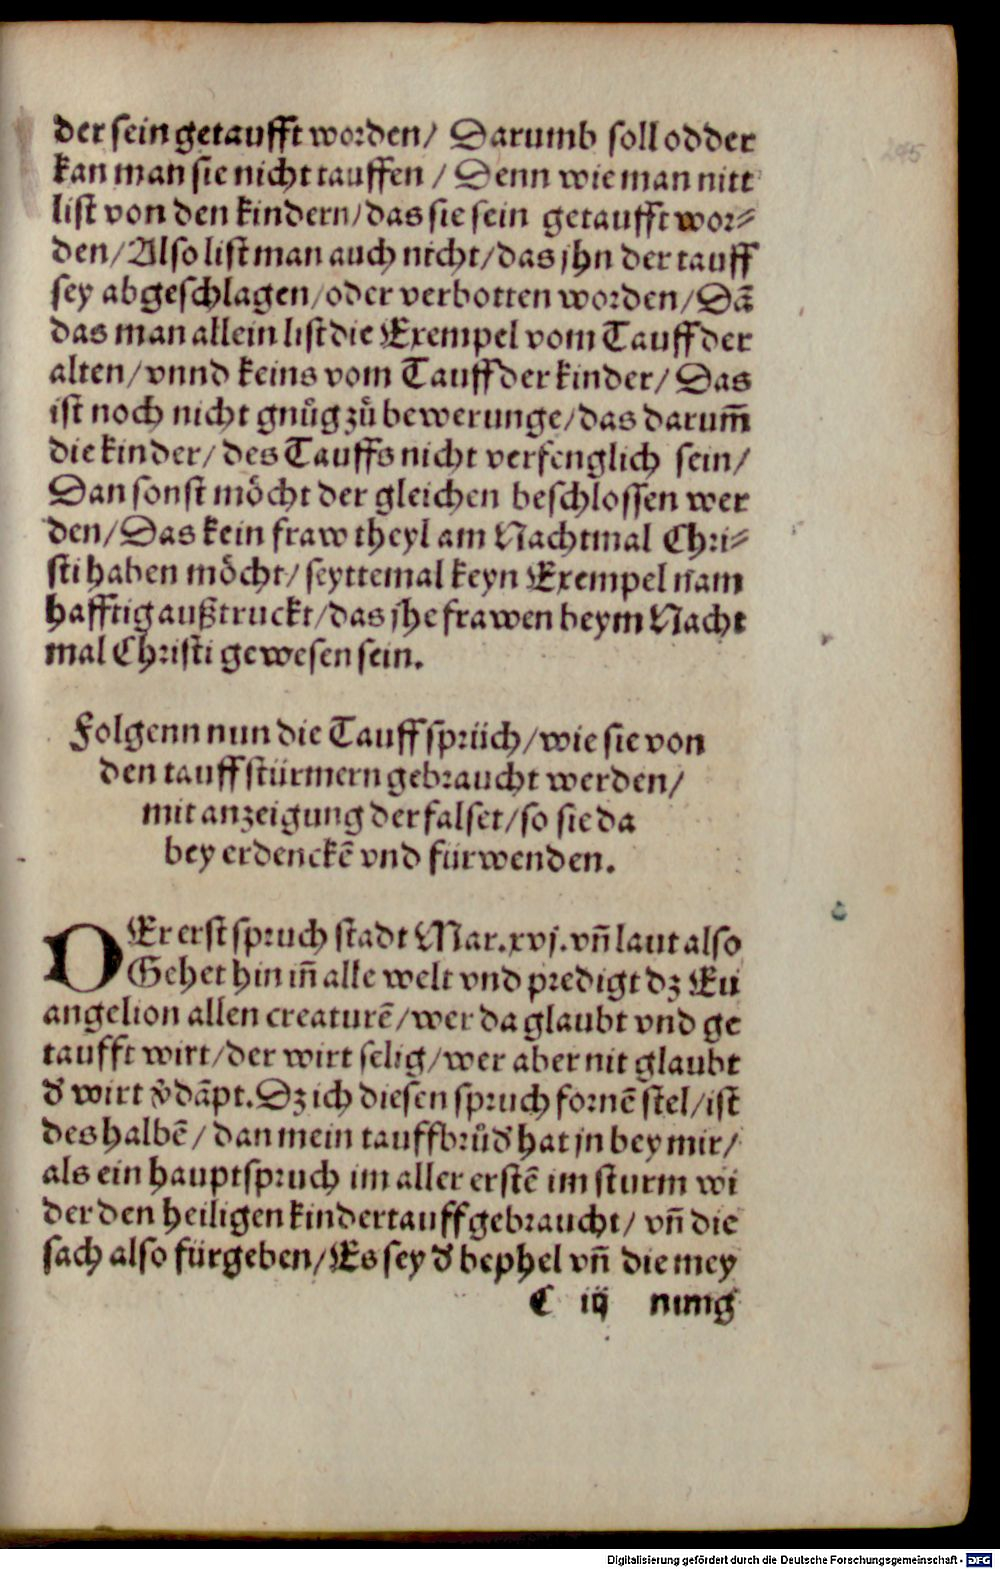 der sein getaufft worden/ Darumb soll odder
kan man sie nicht tauffen / Denn wie man nitt
list von den kindern/das sie sein getaufft wor⸗
den/Also list man auch nicht/das jhn der tauff
sey abgeschlagen/oder verbotten worden/Dā
das man allein list die Exempel vom Tauff der
alten/vnnd keins vom Tauff der kinder/Das
ist noch nicht gnůg zů bewerunge/das darum̄
die kinder/des Tauffs nicht verfenglich sein/
Dan sonst möcht der gleichen beschlossen wer
den/Das kein fraw theyl am Nachtmal Chri⸗
sti haben möcht/seyttemal keyn Exempel nam
hafftig außtruckt/das jhe frawen beym Nacht
mal Christi gewesen sein.
Folgenn nun die Tauff sprüch/wie sie von
den tauff stürmern gebraucht werden/
mit anzeigung der falset/so sie da
bey erdenckē vnd fürwenden.
DEr erst spruch stadt Mar.xvj.vn̄ laut also
Gehet hin in̄ alle welt vnd predigt dz Eu
angelion allen creaturē/wer da glaubt vnd ge
taufft wirt/der wirt selig/wer aber nit glaubt
d' wirt v'dāpt.Dz ich diesen spruch fornē stel/ist
des halbē/dan mein tauffbrůd' hat jn bey mir/
als ein hauptspruch im aller erstē im sturm wi
der den heiligen kindertauff gebraucht/vn̄ die
sach also fürgeben/Es sey d' bephel vn̄ die mey
C iij nung
245
Digitalisierung gefördert durch die Deutsche Forschungsgemeinschaft - DFG